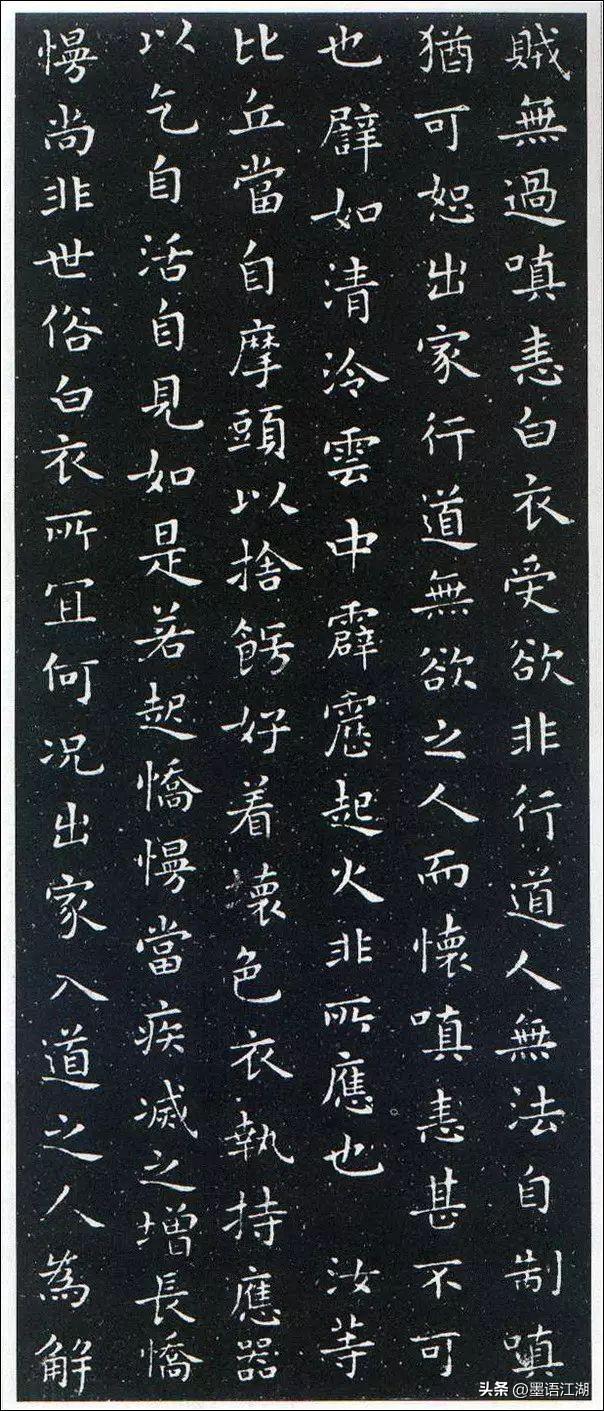 賊無過嗔恚白衣受欲非行道人無法自制嗔
猶可恕出家行道無欲之人而懷嗔恚甚不可
也譬如清泠雲中霹靂起火非所應也　汝等
比丘當自摩頭以捨餝好着壞色衣執持應器
以乞自活自見如是若起憍慢當疾滅之增長憍
慢尚非世俗白衣所宜何況出家入道之人為解
头条 @墨语江湖